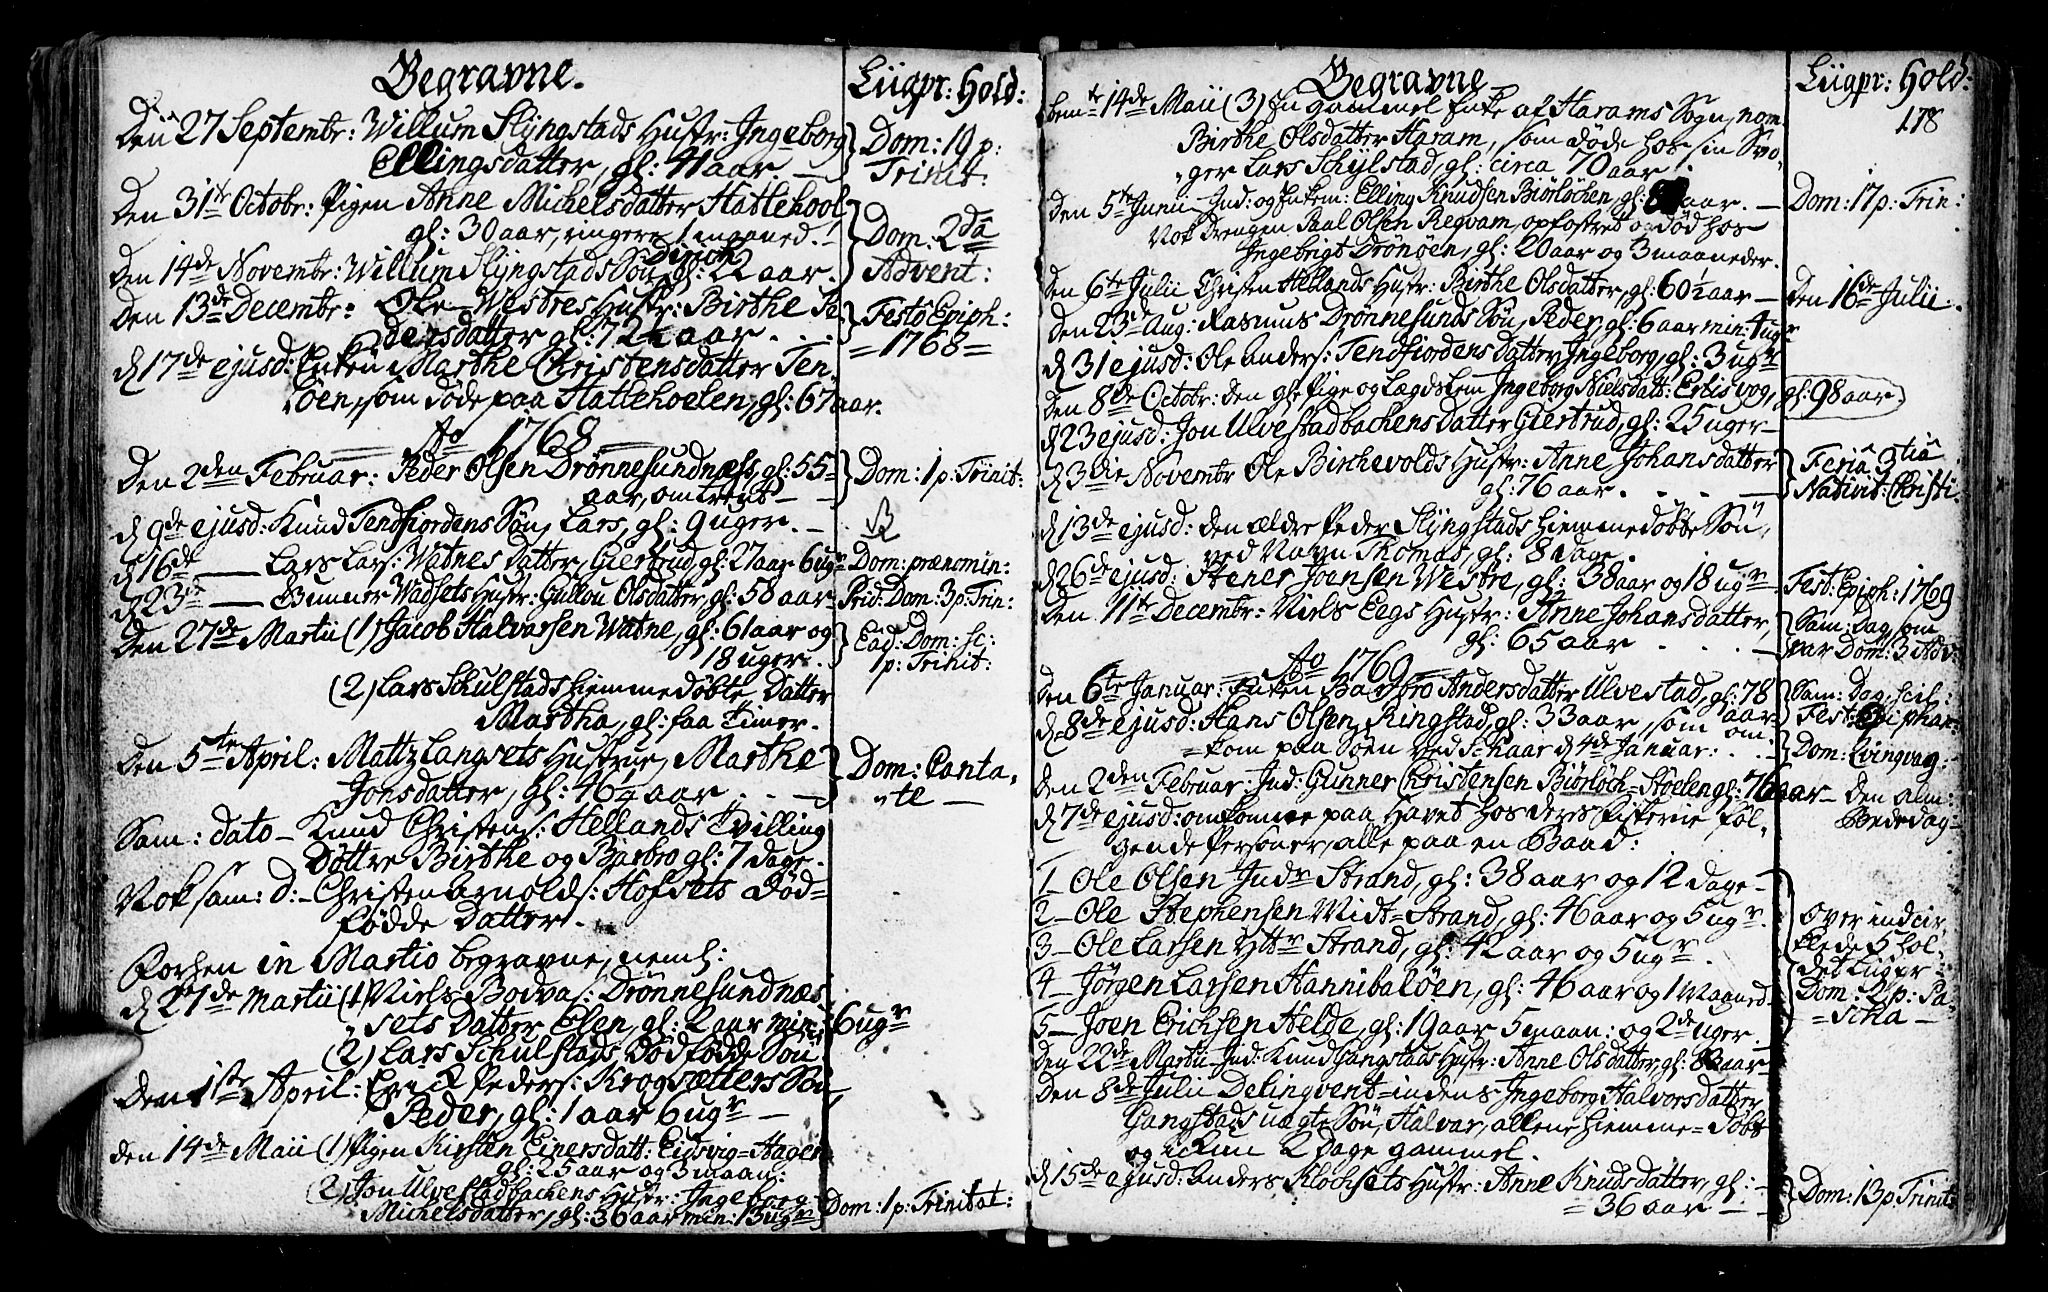 Begravne.
Liigpr: Hold:
Den 27 Septembr: Willum Slyngstads Hustr: Ingeborg
Dom: 19 p:
Ellingsdatter, gl: 41 aar. —
Trinit:
Den 31te Octobr: Pigen Anne Michelsdatter Hattlehool
gl: 30 aar, ringere 1 maaned.
Dom: 2da
Den 14de Novembr: Willum Slyngstads Søn gl: 22 aar.
Advent:
Den 13de Decembr: Ole Westres Hustr: Birthe Pe
Festo Epiph:
dersdatter gl: 72½ aar
=1768=
d 17de ejusd: Enken Marthe Christensdatter Ten
søen, som døde paa Hattlehoelen, gl: 67 aar.
Ao 1768
Den 2den Februar: Peder Olsen Drønnesundnæss, gl: 55=
Dom: 1 p: Trinit:
aar, omtrent —
d 9de ejusd: Knud Tendfiordens Søn, Lars, gl: 9 uger. —
d 16de — Lars Lars: Watnes Datter, Giertrud, gl: 27 aar 6 ugr
Dom: prænomin:
d 23de — Gunner Wadsets Hustr: Gullou Olsdatter, gl: 58 aar
Prid: Dom: 3 p: Trin:
Den 27de Martii (1) Jacob Halvarsen Watne, gl: 61 aar og
Ead: Dom: sc:
18 uger.
1 p: Trinit:
(2) Lars Schulstads hiemmedøbte Datter
Martha, gl: faa Timer.
Den 5te April: Mattz Langsets Hustrue, Marthe
Dom: Canta,
Jonsdatter, gl: 46¼ aar
te —
Sam: dato — Knud Christens: Hellands Tvilling
Døttre Birthe og Barbro gl: 7 dage.
Nok sam: d: — Christen Arnolds: Hofsets Død=
fødde Datter.
Forhen in Martio begravne, neml:
d 27de Martii (1) Niels Bodvas: Drønnesundnæs
sets Datter Elen, gl: 2 aar min: 6 ugr
(2) Lars Schulstads Dødfødde Søn
Den 1ste April: Eric Peders: Krogsætters Søn,
Peder, gl: 1 aar 6 ugr —
Den 14de Maii (1) Pigen Kirsten Einersdatt: Eidsvig=Hagen
gl: 25 aar og 3 maan:
(2) Jon Ulvestadbackens Hustr: Ingeborg
Dom: 1 p: Trinitat:
Michelsdatter, gl: 36 aar min: 13 ugr
Begravne
Liigpr: Hold:
178
Den 14de Maii (3) En gammel Enke af Harams Sogn, nom
Birthe Olsdatter Haram, som døde hos sin Svo,
ger Lars Schylstad, gl: circa 70 aar.
Den 5te Junii — Ind: og Enkem: Elling Knudsen Biørlochen, gl: aar. —
Dom: 17 p: Trin:
Nok Drengen Paal Olsen Regvam, opfostret og død hos
Ingebrigt Drønøen, gl: 20 aar og 3 maaneder.
Den 6te Julii Christen Hellands Hustr: Birthe Olsdatter, gl: 60½ aar —
Den 16de Julii:
Den 23de Aug: Rasmus Drønnesunds Søn, Peder, gl: 6 aar min: 4 ugr
d 31 ejusd: Ole Anders: Tendfiordens Datter Ingeborg, gl: 3 ugr
Den 8de Octobr: den gle Pige og Lægdslem Ingeborg Nielsdatt: Eriisvog, gl: 98 aar.
d 23 ejusd: Jon Ulvestadbackens Datter Giertrud, gl: 25 uger —
d 23die Novembr Ole Birchevolds Hustr: Anne Johansdatter
Feria 3tia
gl: 76 aar.
Nativit: Christi
d 13de ejusd: den ældre Peder Slyngstads hiemmedøbte Søn,
ved Navn Thomas, gl: 8 dage.
d 26de ejusd: Stener Joensen Westre, gl: 38 aar og 18 ugr
Fest: Epiph: 1769
Den 11te Decembr: Niels Eegs Hustr: Anne Johansdatter,
Sam: Dag, som
gl: 65 aar
var Dom: 3 Adv:
Ao 1769
Den 6te Januar: Enken Barbro Andersdatter Ulvestad, gl: 78 aar
Sam: Dag, scil:
d 8de ejusd: Hans Olsen, Ringstad, gl: 33 aar, som om=
Fest: Epiphan:
kom paa Søen ved d 4de Januar:
Dom: Qvinqvag:
Den 2den Februar Ind: Gunner Christensen Biørloch=Hoelen gl: 76 aar —
Den alm:
d 7de ejusd: omkomne paa Havet hos deres Fiskerie føl,
Bededag —
gende Personer, alle paa en Baad:
1 — Ole Olsen Indr Strand, gl: 38 aar og 12 dage —
2 — Ole Stephensen Midt=Strand, gl: 46 aar og 5 ugr.
Over indcir,
3 — Ole Larsen Yttr Strand, gl: 42 aar og 5 ugr.
klede 5 hol,
det Liigpr:
4 — Jørgen Larsen Hannibaløen, gl: 46 aar og 1 Maaned.
Dom: 2 p: Pa=
5 — Joen Erichsen Helde, gl: 19 aar 5 maan: og 2de uger
scha —
Den 22de Martii Ind: Knud Gangstads Hustr: Anne Olsdatter, gl: aar
Den 8de Julii Delinqventindens Ingeborg Halvorsdatter
Gangstads uægte Søn, Halvar, allene hiemme=døbt
og ickun 2 Dage gammel.
d 15de ejusd: Anders Klochsets Hustr: Anne Knudsdatter, gl: —
Dom: 13 p: Trinit:
=36 aar —